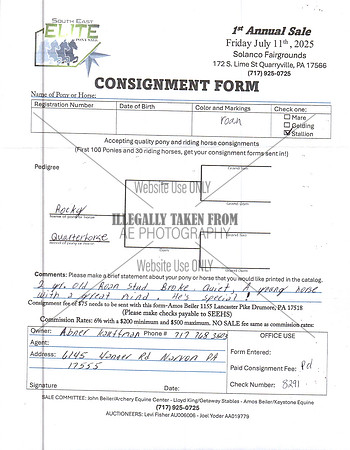 SOUTH EAST
ELITE
1st Annual Sale
Friday July 11th, 2025
Solanco Fairgrounds
172 S. Lime St Quarryville, PA 17566
(717) 925-0725
CONSIGNMENT FORM
Name of Pony or Horse:
Registration Number Date of Birth Color and Markings Check one:
roan
Mare
Gelding
Stallion
Accepting quality pony and riding horse consignments
(First 100 Ponies and 30 riding horses, get your consignment forms sent in!)
Pedigree
Website Use ONLY
Rocky
ILLEGALLY TAKEN FROM
AE PHOTOGRAPHY
Quarterhorse
Website Use ONLY
Comments: Please make a brief statement about your pony or horse that you would like printed in the catalog.
2 yr. old Roan Stud Broke, Quiet, A young horse
with a great mind. He's special!
Consignment fee of $75 needs to be sent with this form-Amos Beiler 1155 Lancaster Pike Drumore, PA 17518
(Please make checks payable to SEEHS)
Commission Rates: 6% with a $200 minimum and $500 maximum. NO SALE fee same as commission rates:
Owner: Abner Kauffman Phone # 717 768
OFFICE USE
Agent:
Form Entered:
Address: 6145 Yoner Rd Narvon PA
17555
Paid Consignment Fee: Pd
Check Number: 8291
Signature Date
SALE COMMITTEE: John Beiler/Archery Equine Center - Lloyd King/Getaway Stables - Amos Beiler/Keystone Equine
(717) 925-0725
AUCTIONEERS: Levi Fisher AU006006 - Joel Yoder AA019779